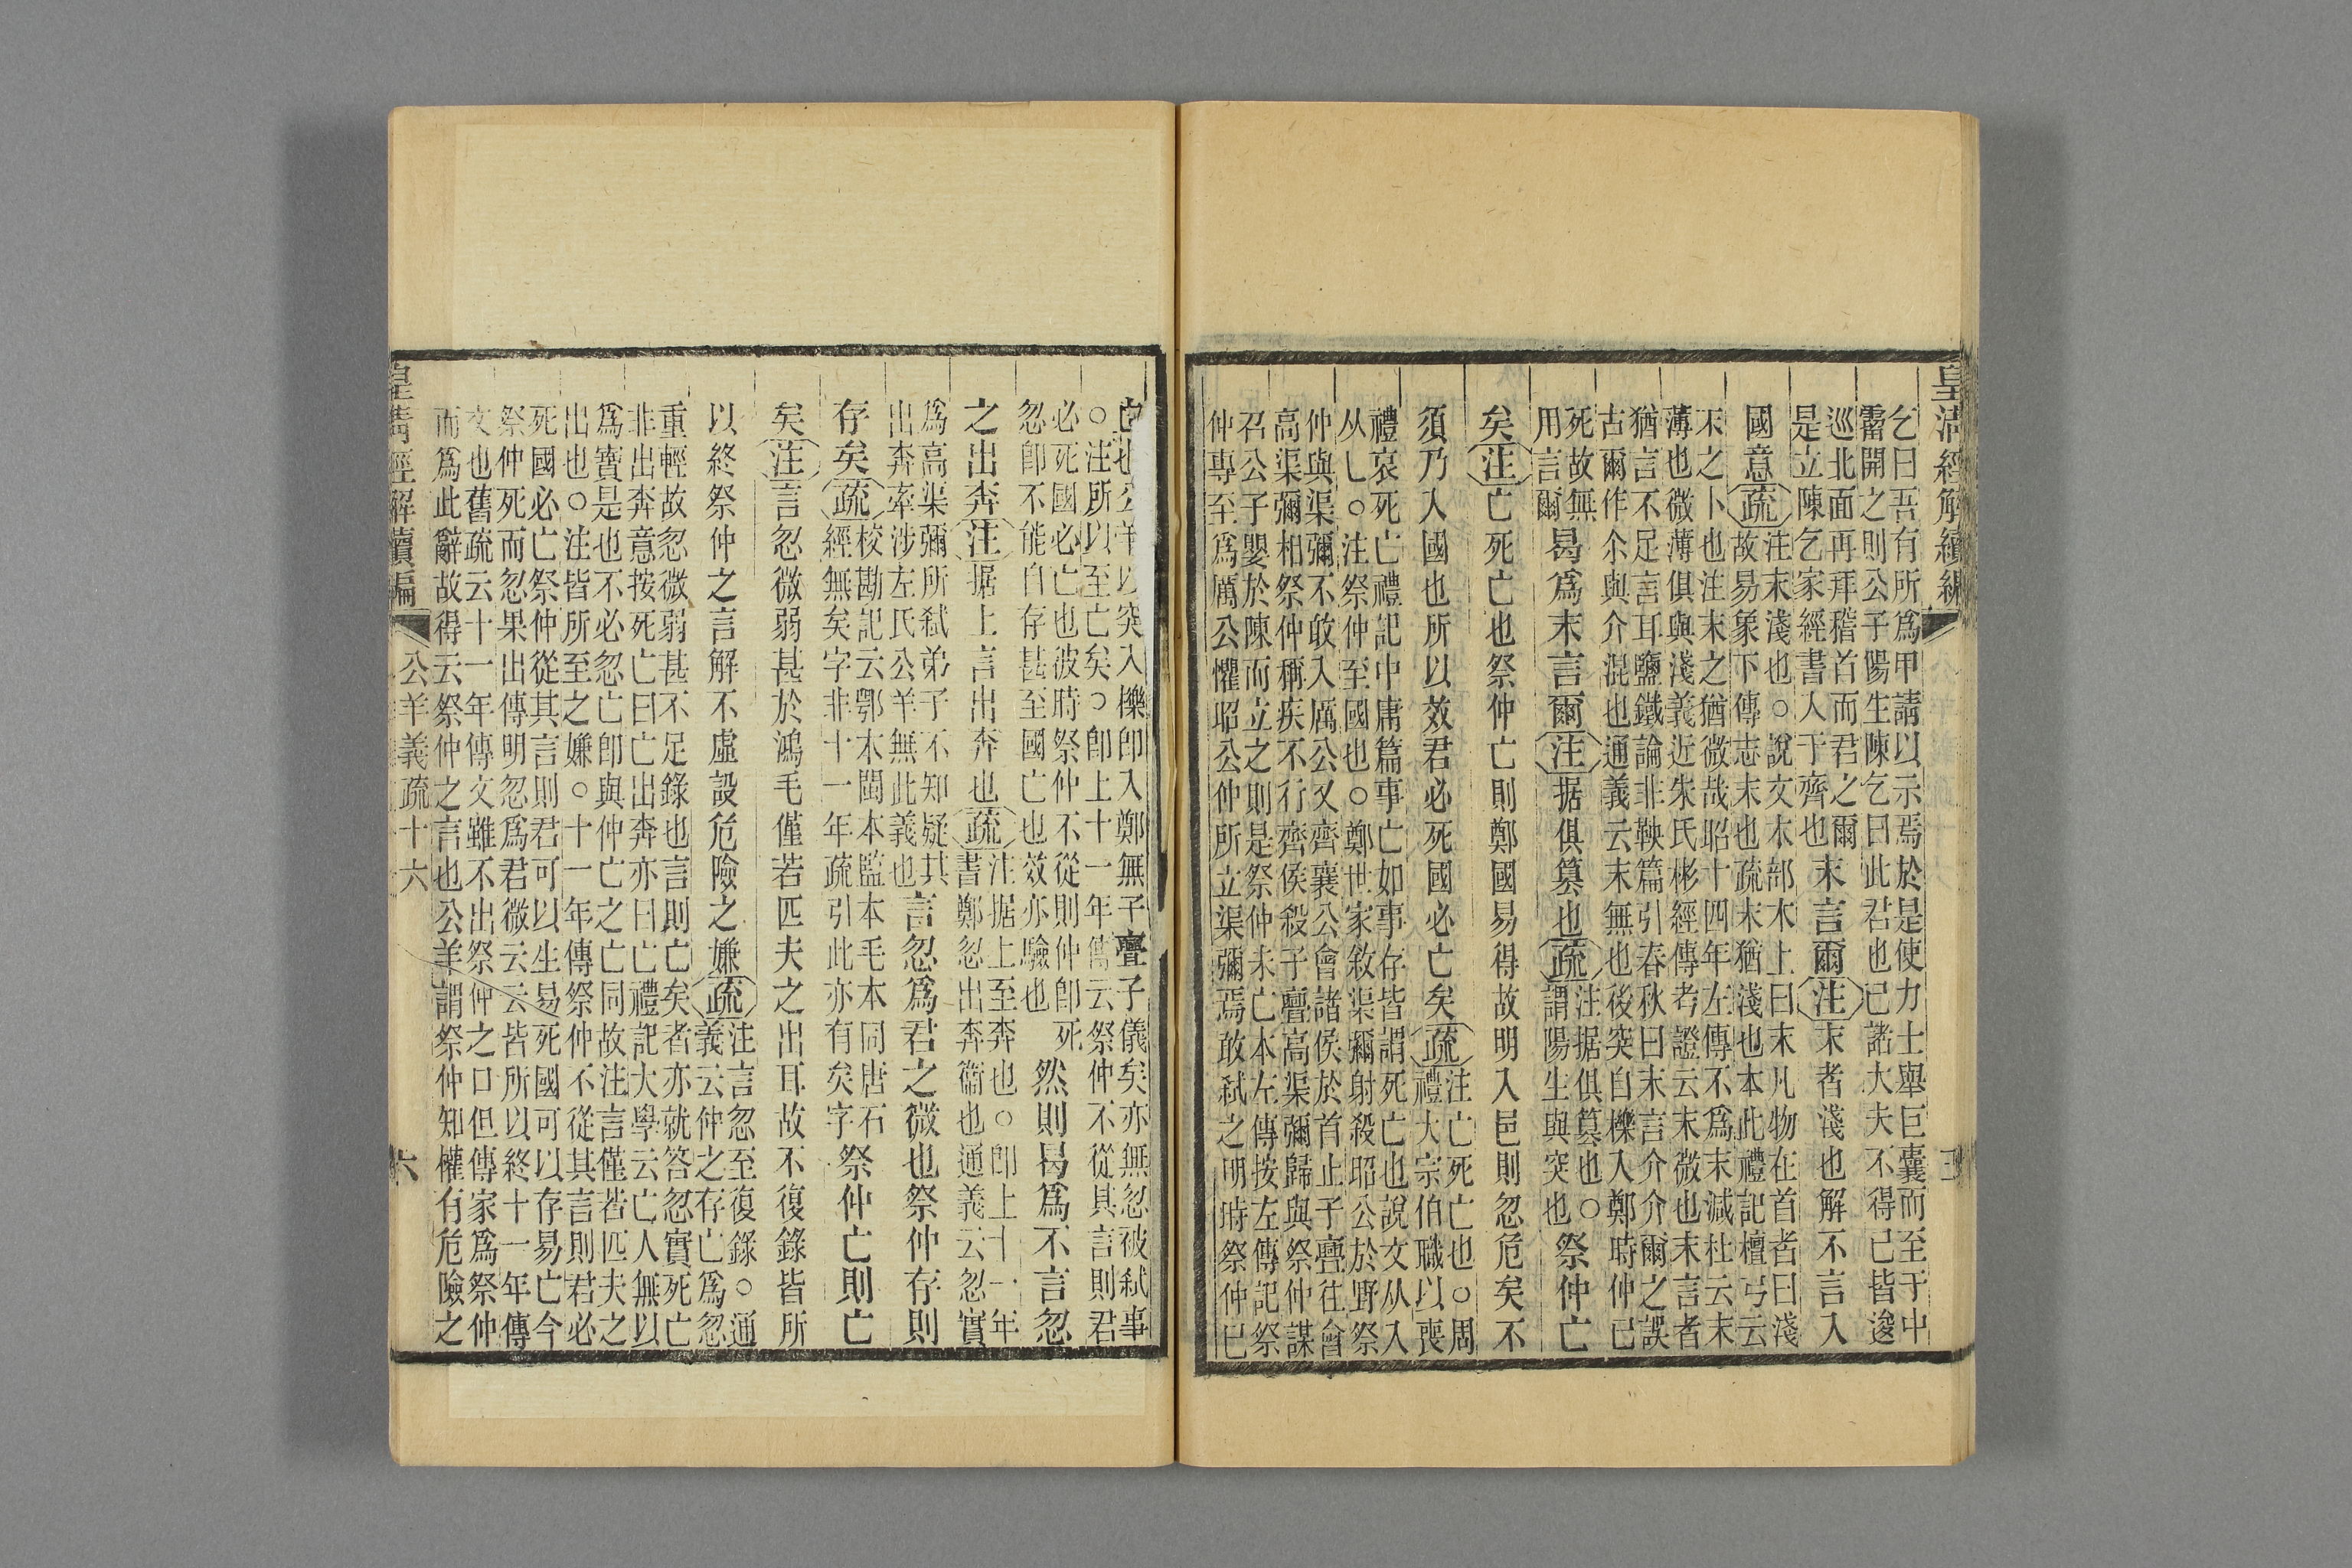 皇清經解續編
乞曰吾有所爲甲請以示焉於是使力士舉巨囊而至于中
霤開之則公子陽生陳乞曰此君也已諾大夫不得已皆逡
巡北面再拜稽首而君之爾
是立陳乞家經書人于齊也
末言爾注末者淺也解不言入
國意疏注末淺也○說文木部木上曰末凡物在首者曰淺
故易象下傳志末也疏末猶淺也本此禮記檀弓云
末之卜也注末之猶微哉昭十四年左傳不爲末減杜云末
薄也微薄俱與淺義近朱氏彬經傳考證云末微也末言者
猶言不足言耳鹽鐵論非鞅篇引春秋曰末言介介爾之誤
古爾作尒與介混也通義云末無也後突自櫟入鄭時仲已
死故無
用言爾
曷爲末言爾注据俱篡也疏注据俱篡也○
謂陽生與突也
祭仲亡
矣注亡死亡也祭仲亡則鄭國易得故明入邑則忽危矣不
須乃入國也所以效君必死國必亡矣疏注亡死亡也○周
禮大宗伯職以喪
禮哀死亡禮記中庸篇事亡如事存皆謂死亡也說文从入
从乚○注祭仲至國也○鄭世家敘渠彌射殺昭公於野祭
仲與渠彌不敢入厲公又齊襄公會諸侯於首止子亹往會
高渠彌相祭仲稱疾不行齊侯殺子亹高渠彌歸與祭仲謀
召公子嬰於陳而立之則是祭仲未亡本左傳按左傳記祭
仲專至爲厲公懼昭公仲所立渠彌焉敢弒之明時祭仲已
亡也公羊以突入櫟卽入鄭無子亹子儀矣亦無忽被弒事
○注所以至亡矣○卽上十一年傳云祭仲不從其言則君
必死國必亡也彼時祭仲不從則仲卽死
忽卽不能自存甚至國亡也效亦驗也
然則曷爲不言忽
之出奔注据上言出奔也疏注据上至奔也○卽上十一年
書鄭忽出奔衞也通義云忽實
爲高渠彌所弒弟子不知疑其
出奔牽涉左氏公羊無此義也
言忽爲君之微也祭仲存則
存矣疏校勘記云鄂本閩本監本毛本同唐石
經無矣字非十一年疏引此亦有矣字
祭仲亡則亡
矣注言忽微弱甚於鴻毛僅若匹夫之出耳故不復錄皆所
以終祭仲之言解不虛設危險之嫌疏注言忽至復錄○通
義云仲之存亡爲忽
重輕故忽微弱甚不足錄也言則亡矣者亦就答忽實死亡
非出奔意按死亡曰亡出奔亦曰亡禮記大學云亡人無以
爲寶是也不必忽亡卽與仲亡之亡同故注言僅若匹夫之
出也○注皆所至之嫌○十一年傳祭仲不從其言則君必
死國必亡祭仲從其言則君可以生易死國可以存易亡今
祭仲死而忽果出傳明忽爲君微云云皆所以終十一年傳
文也舊疏云十一年傳文雖不出祭仲之口但傳家爲祭仲
而爲此辭故得云祭仲之言也公羊謂祭仲知權有危險之
皇清經解續編
公羊義疏十六
六